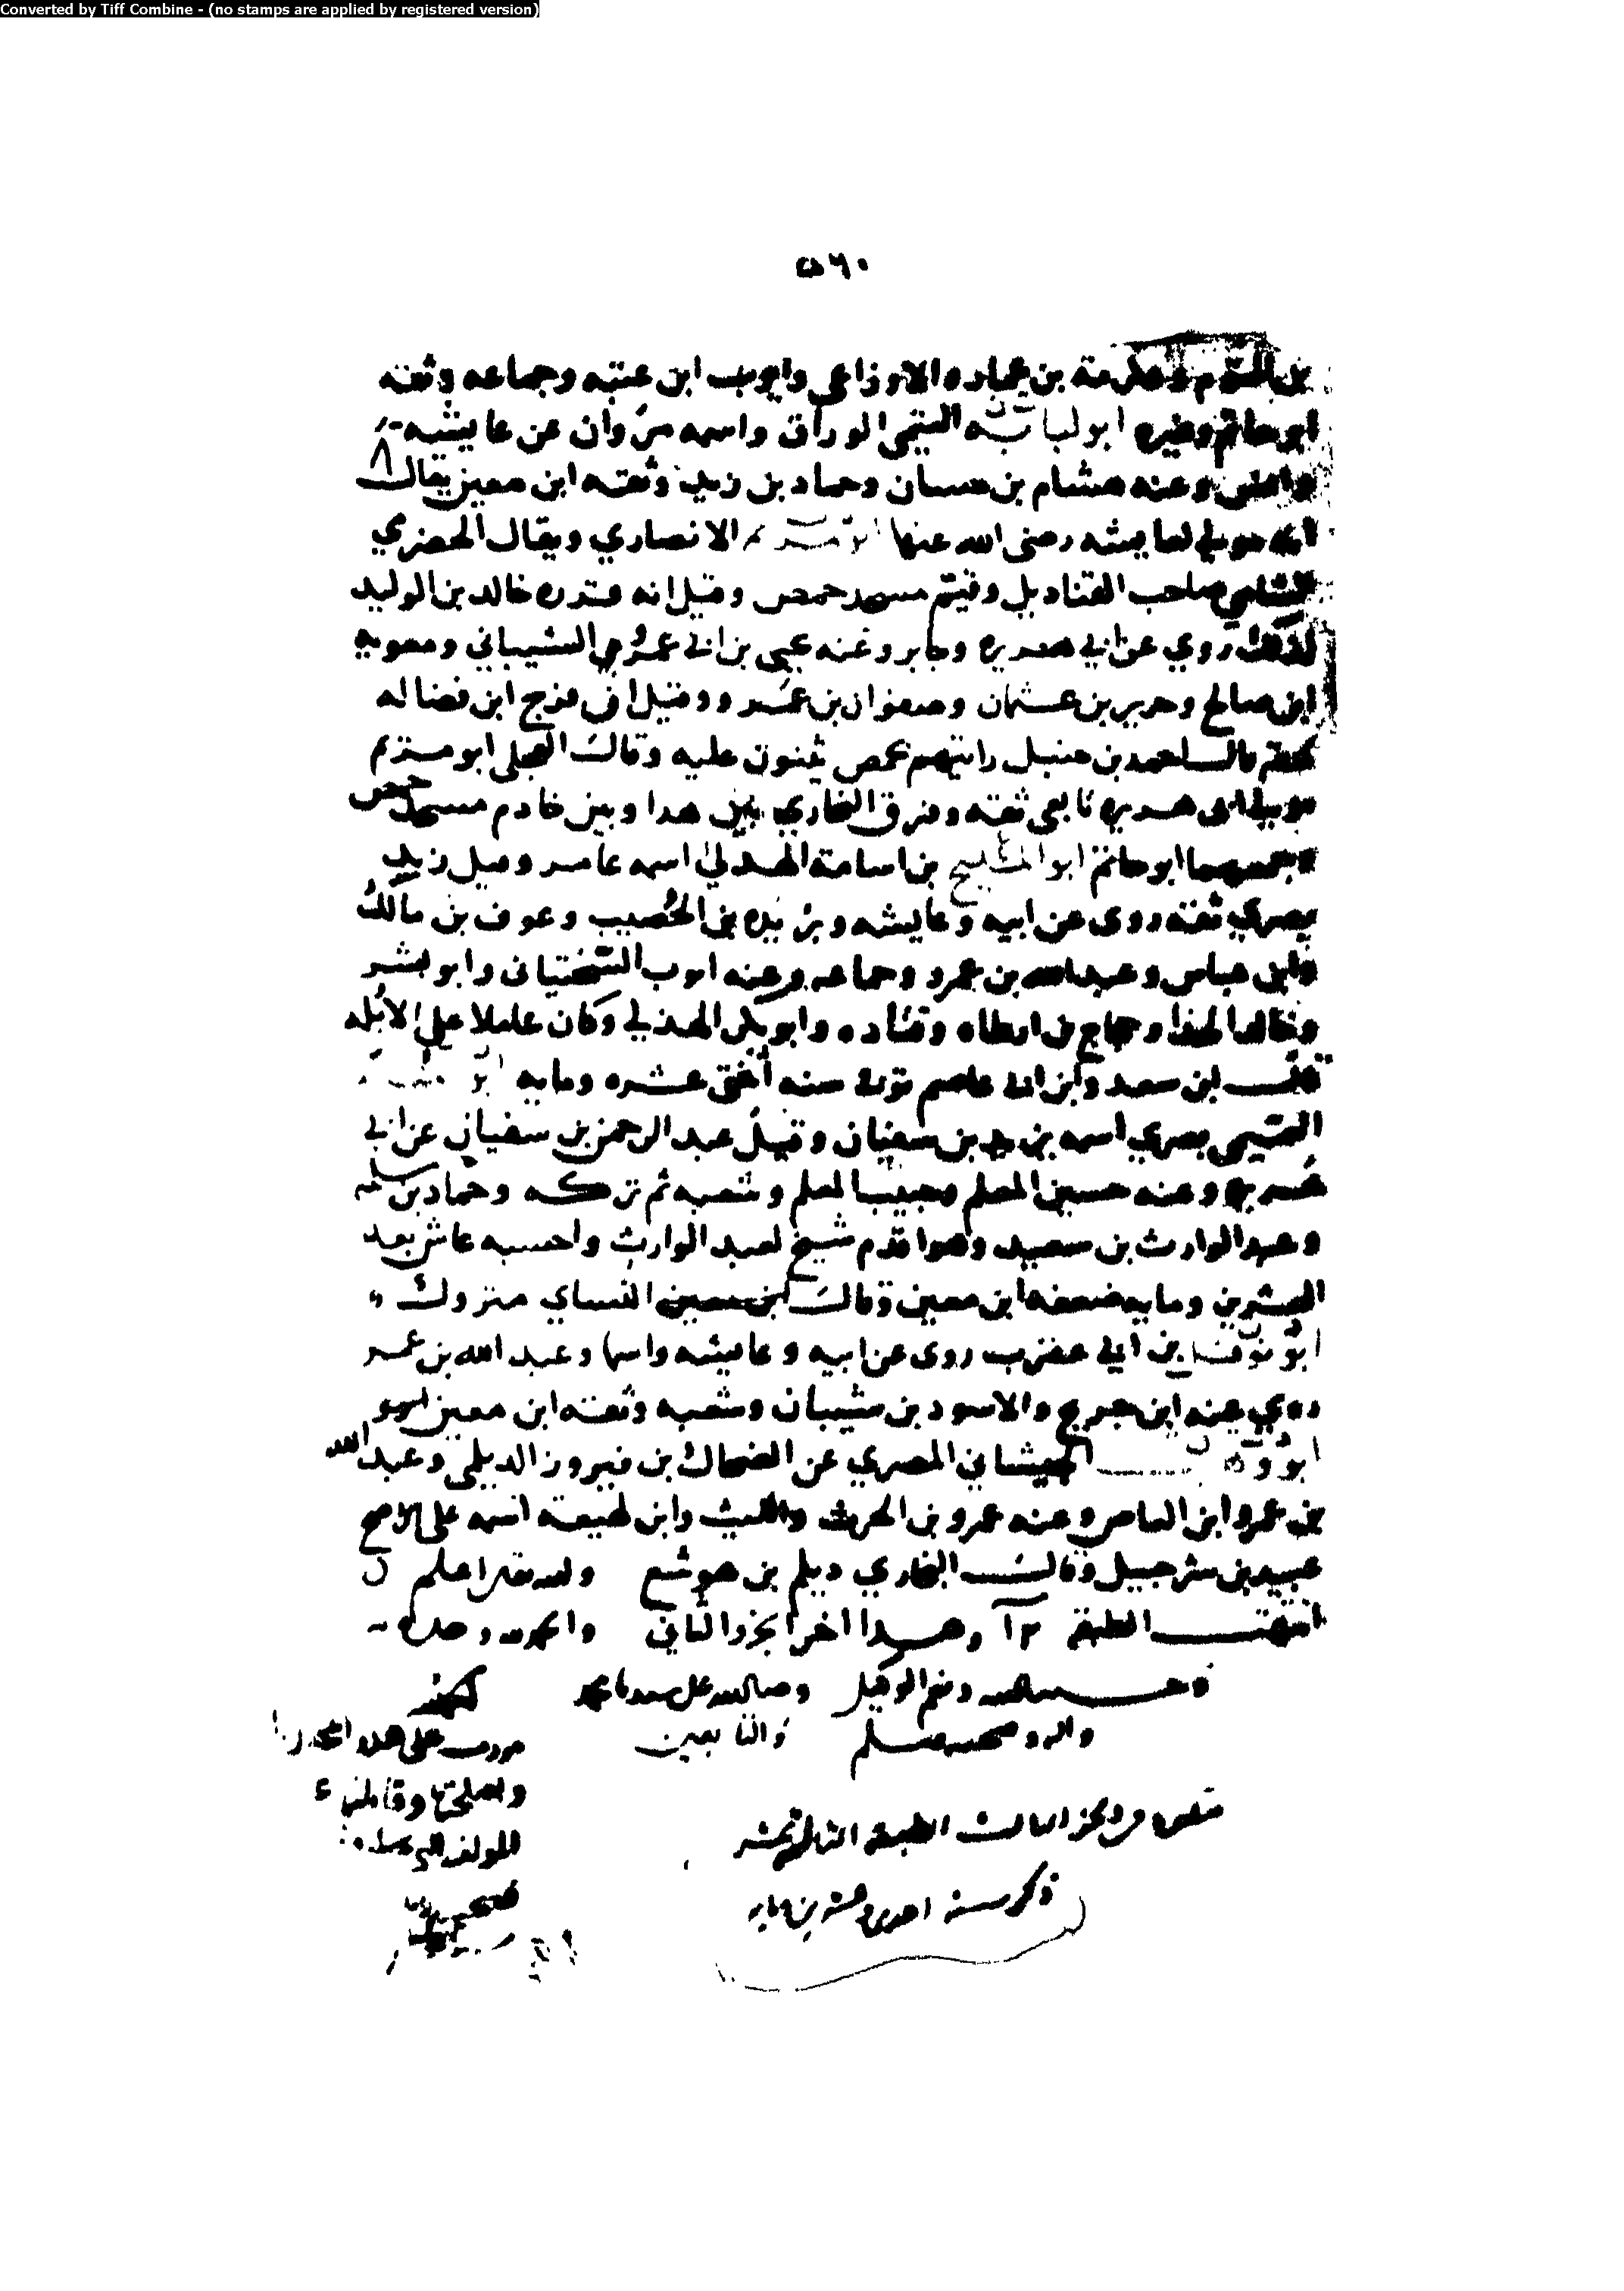 Converted by Tiff Combine - (no stamps are applied by registered version)
٥٦٠
بن وعكرمة بن عمار والاوزاعي وايوب ابن عتبه وجماعه وثقه
ابو حاتم وغيره ابو لبابه الوراق واسمه مروان عن عايشه
وانس وعنه هشام بن حسان وحماد بن زيد وثقه ابن معين يقال
انه مولي لعايشه رضى الله عنها ابو مريم الانصاري ويقال الحضرمي
الشامي صاحب القناديل وقيم مسجد حمص وقيل انه قدره خالد بن الوليد
لذلك روي عن ابي هريره وجابر وعنه يحيى بن ابي عمرو الشيباني ومعويه
ابن صالح وحرير بن عثمان وصفوان بن عمرو وقيل ان فرج ابن فضاله
لحقه قال احمد بن حنبل رايتهم بحمص يثنون عليه وقال العجلى ابو مريم
مولى ابى هريره تابعي ثقه وفرق البخاري بين هدا وبين خادم مسجد حمص
وجمعهما ابو حاتم ابو المليح بن اسامة الهدلي اسمه عامر وقيل زيد
بصري ثقه روى عن ابيه وعايشه وبريده بن الحُصيب وعوف بن مالك
وابن عباس وعبد الله بن عمرو وجماعه وعنه ايوب السختياني وابو بشر
وخالد الحذا وحجاج بن ارطاه وقتاده وابو بكر الهذلي وكان عاملا على الابله
قال ابن سعد وابن ابي عاصم توفي سنه اثنتي عشره ومايه ابو
التميمي بصري اسمه يزيد بن سفيان وقيل عبد الرحمن بن سفيان عن ابي
هريره وعنه حسين المعلم وحبيب المعلم وشعبه ثم تركه وحماد بن سلمه
وعبد الوارث بن سعيد وهو اقدم شيخ لعبد الوارث واحسبه عاش بعد
العشرين ومايه ضعفه ابن معين وقال النساي متروك
ابو نوفل بن ابي عقرب روى عن ابيه وعايشه واسما وعبد الله بن عمر
روي عنه ابن جريج والاسود بن شيبان وشعبه وثقه ابن معين
ابو وهب الجيشاني المصري عن الضحاك بن فيروز الديلمي وعبد الله
بن عمرو ابن العاص وعنه عمرو بن الحرث والليث وابن لهيعة اسمه على الاصح
عبيد بن شرحبيل وقال البخاري ديلم بن هوشع والله اعلم
انتهت الطبقة ١٢ وهدا اخر الجزو الثاني والحمد لله وحده
وحسبنا الله ونعم الوكيل وصلى الله على سيدنا محمد
واله وصحبه وسلم والتابعين
الثالث الطبقة الثالثة عشر
ذكر سنة احدى وعشرين ومايه